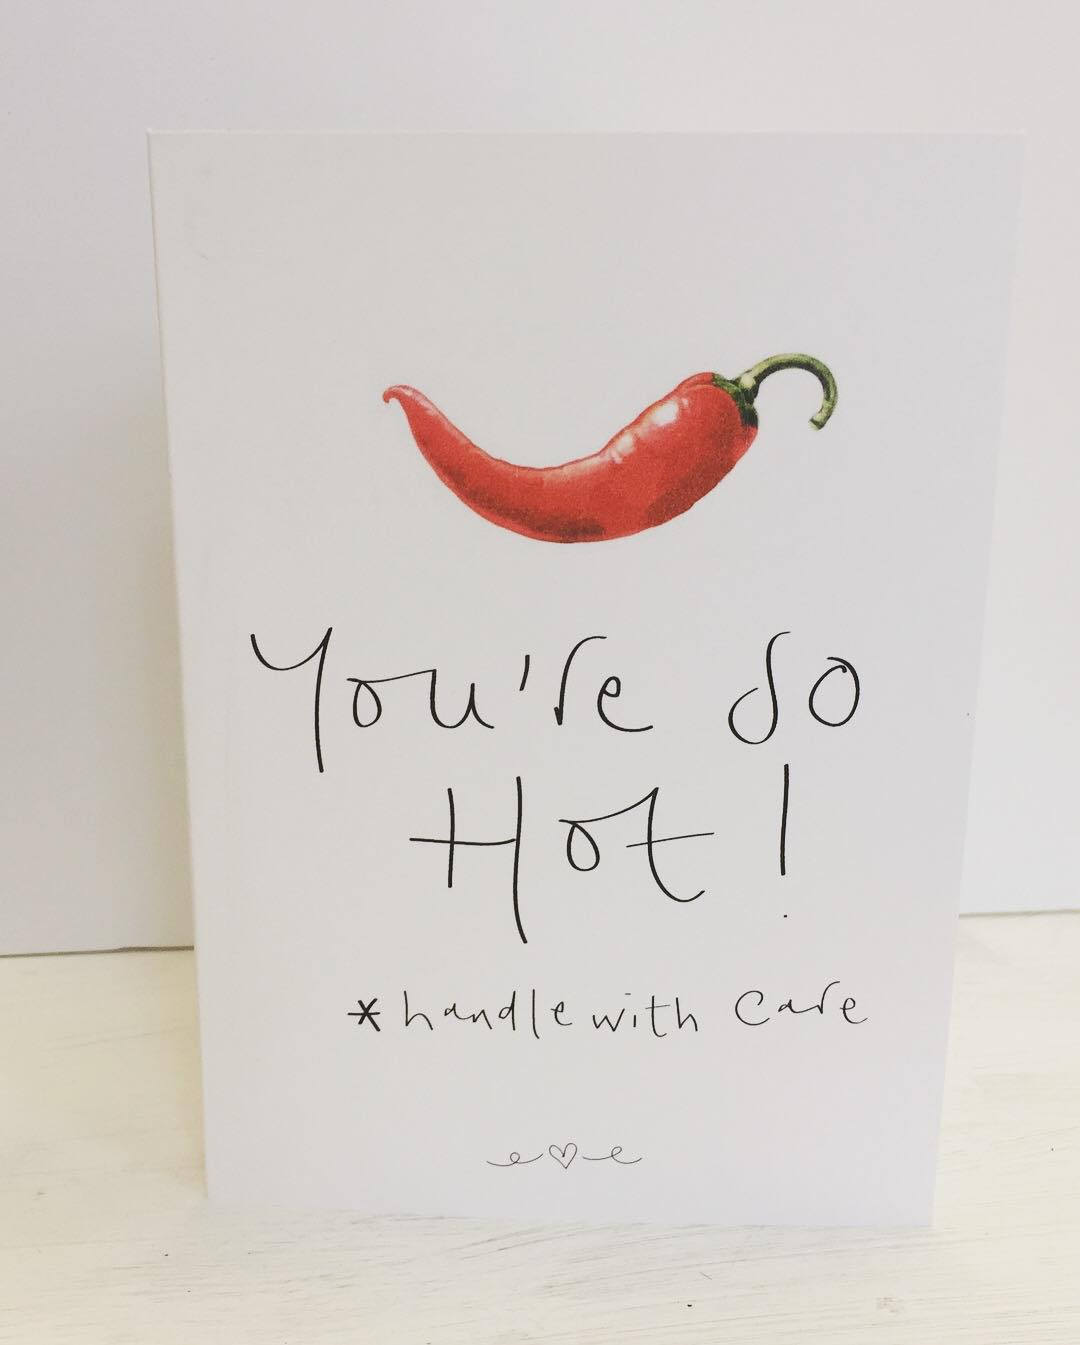 You're so
Hot!
*handle with care